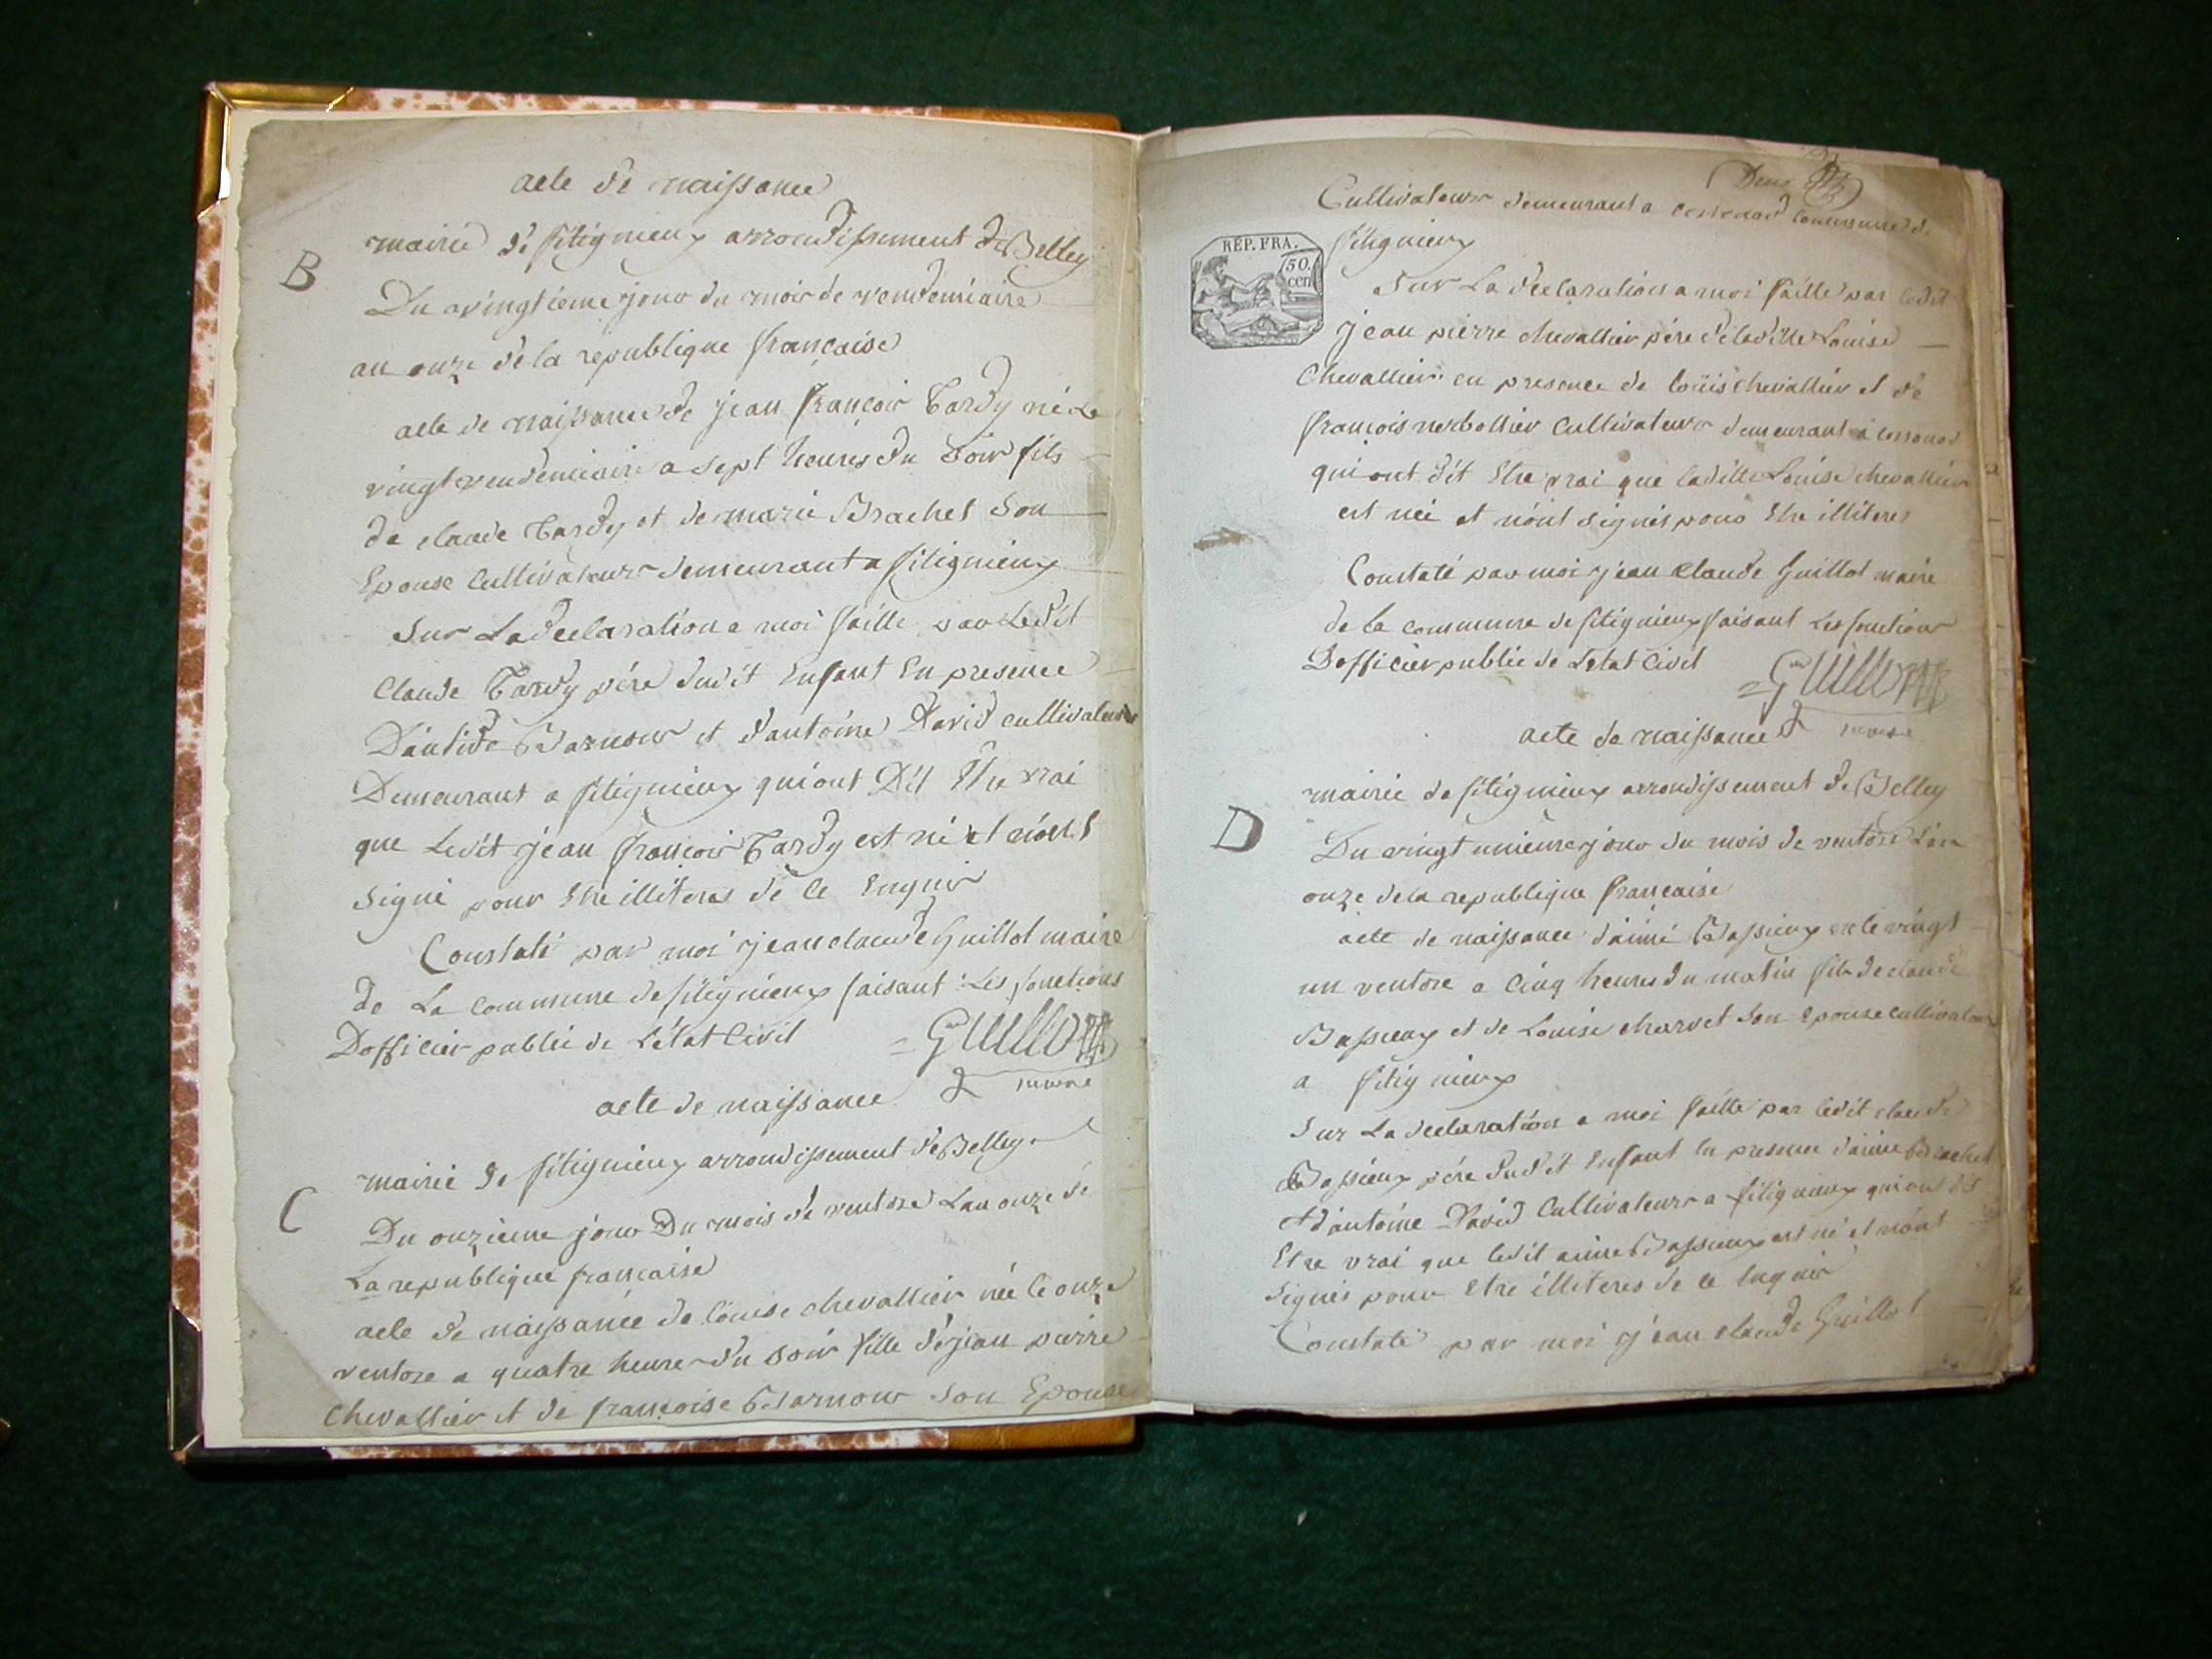 acte de naissance
B
mairie de fitignieux arrondissement de Belley
Du vingtieme jour du mois de vendemiaire
an onze de la republique francaise
acte de naissance de jean francois Tardy né le
vingt vendemiaire a sept heures du soir fils
de claude Tardy et de marie Brachet son
Epouse cultivateurs demeurant a fitignieux
Sur La declaration a moi faitte par Ledit
Claude Tardy pére dudit Enfant En presence
Barnour et d'antoine David cultivateurs
Demeurant a fitignieux qui ont Dit Etre vrai
que Ledit jean francois Tardy est né et n'ont
signé pour Etre illiteres de ce Enquis
Constaté par moi jean claude Guillot maire
de La commune de fitignieux faisant Les fonctions
D'officier public de L'état Civil Guillot
maire
acte de naissance
mairie de fitignieux arrondissement de Belley
C
Du onzieme jour Du mois de ventose Lan onze de
La republique francaise
acte de naissance de Louise chevallier née le onze
ventose a quatre heure du soir fille de jean pierre
Chevallier et de francoise Barnour son Epouse
Deux
Cultivateurs demeurant a commune de
fitignieux
REP. FRA.
50
cen
Sur La declaration a moi faitte par ledit
jean pierre chevallier pére de laditte Louise
Chevallier en presence de loüis chevallier et de
francois cultivateurs demeurant a
qui ont dit Etre vrai que laditte Louise chevallier
est née et n'ont signés pour Etre illiteres
Constaté par moi jean claude Guillot maire
de la commune de fitignieux faisant Les fonctions
D'officier public de Letat Civil Guillot
maire
acte de naissance
mairie de fitignieux arrondissement de Belley
D
Du vingt unieme jour du mois de ventose Lan
onze de la republique francaise
acte de naissance d'aimé Bassieux né le vingt
un ventose a cinq heures du matin fils de claude
Bassieux et de Louise charvet son epouse cultivateurs
a fitignieux
Sur La declaration a moi faitte par ledit claude
Bassieux pére dudit Enfant En presence d'aime Brachet
et d'antoine David Cultivateurs a fitignieux qui ont dit
Etre vrai que ledit aime Bassieux est né et n'ont
signés pour Etre illiteres de ce Enquis
Constaté par moi jean claude Guillot